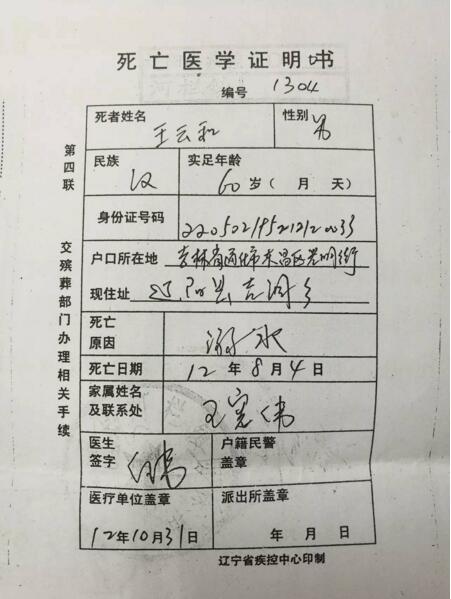 死亡医学证明书
编号 1304
死者姓名 王云和 性别 男
民族 汉 实足年龄 60岁（ 月 天）
身份证号码 220502195212120033
户口所在地 吉林省通化市东昌区光明街
现住址 县吉洞乡
死亡原因 溺水
死亡日期 12年8月4日
家属姓名及联系处 王宪伟
医生签字
户籍民警盖章
医疗单位盖章 派出所盖章
12年10月31日 年 月 日
辽宁省疾控中心印制
第四联 交殡葬部门办理相关手续